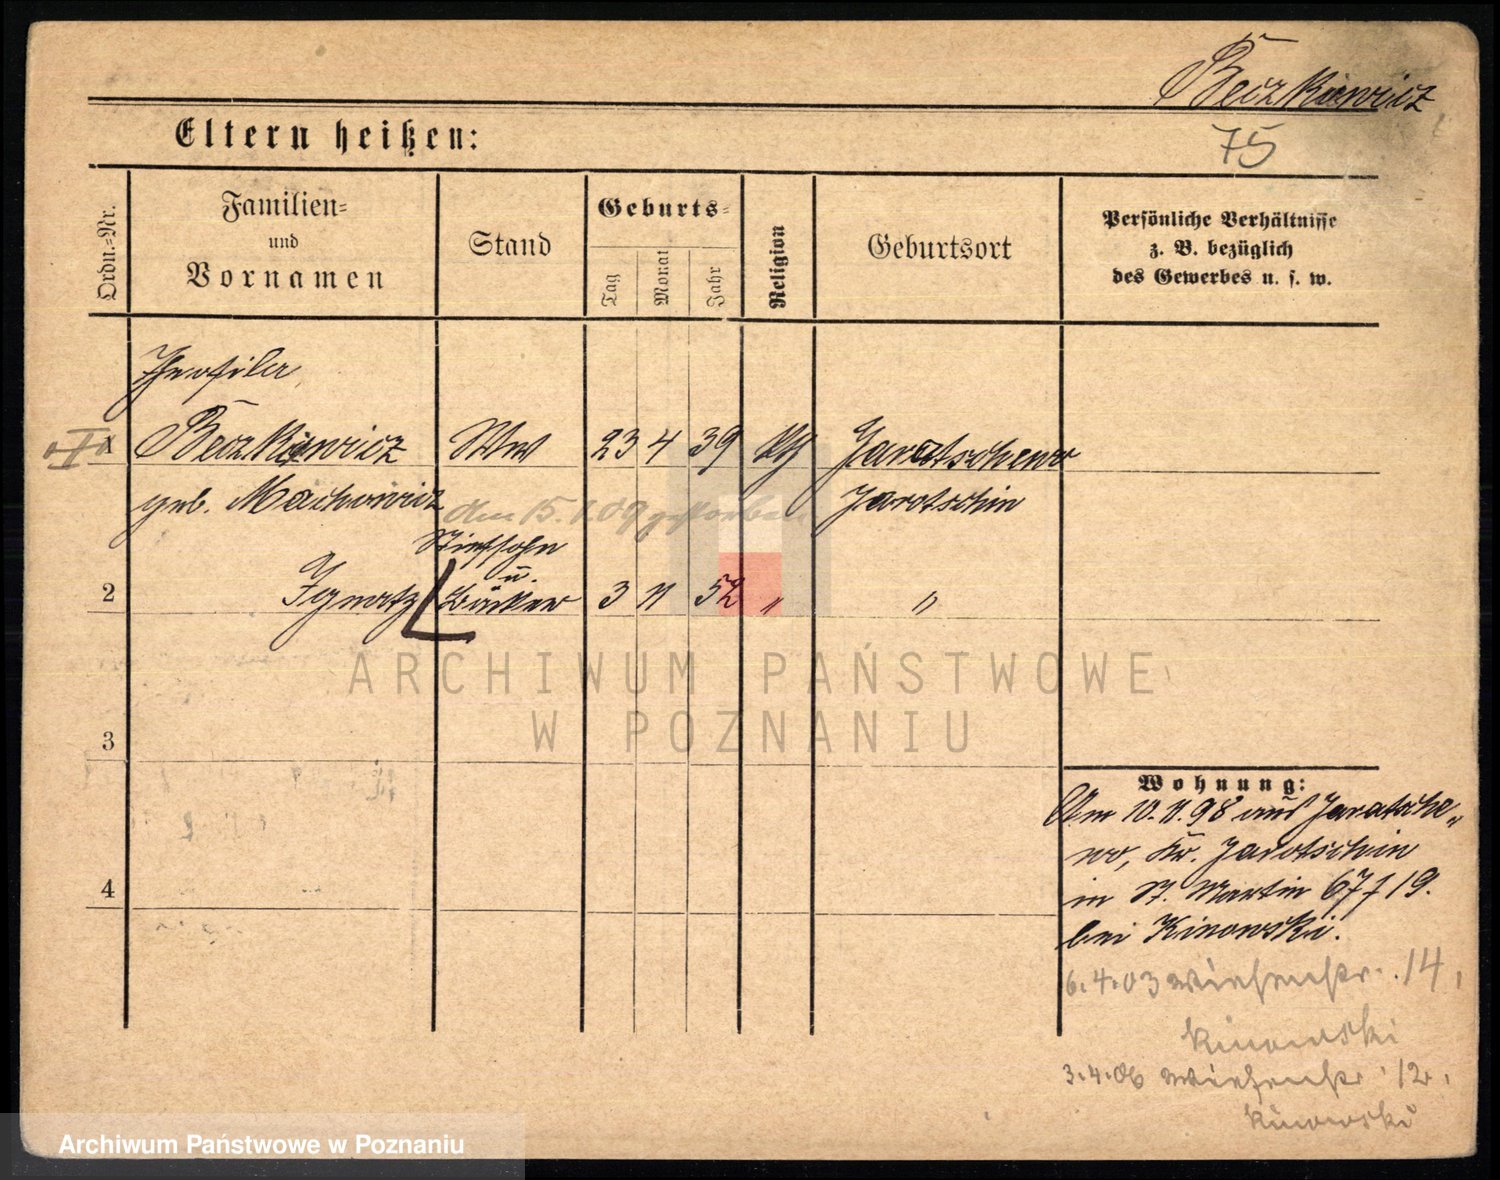 Beczkiewicz
75
Eltern heißen:
Ordn.-Nr.
Familien-
und
Vornamen
Stand
Geburts-
Tag
Monat
Jahr
Religion
Geburtsort
Persönliche Verhältnisse
z. B. bezüglich
des Gewerbes u. s. w.
Theofila
1 Beczkiewicz Ww 23 4 39 kth Jaratschewo
geb. Machowicz Jarotschin
am 15.1.09 gestorben
Stiefsohn
u.
2 Ignatz Bäcker 3 11 52 " "
ARCHIWUM PAŃSTWOWE
W POZNANIU
3
4
Wohnung:
Am 10.11.98 aus Jaratsche-
wo, Kr. Jarotschin
in St. Martin 67 f 19.
bei Kinowski.
6.4.03 Wiesenstr. 14,
Kinowski
3.4.06 Wiesenstr. 12,
Kinowski
Archiwum Państwowe w Poznaniu